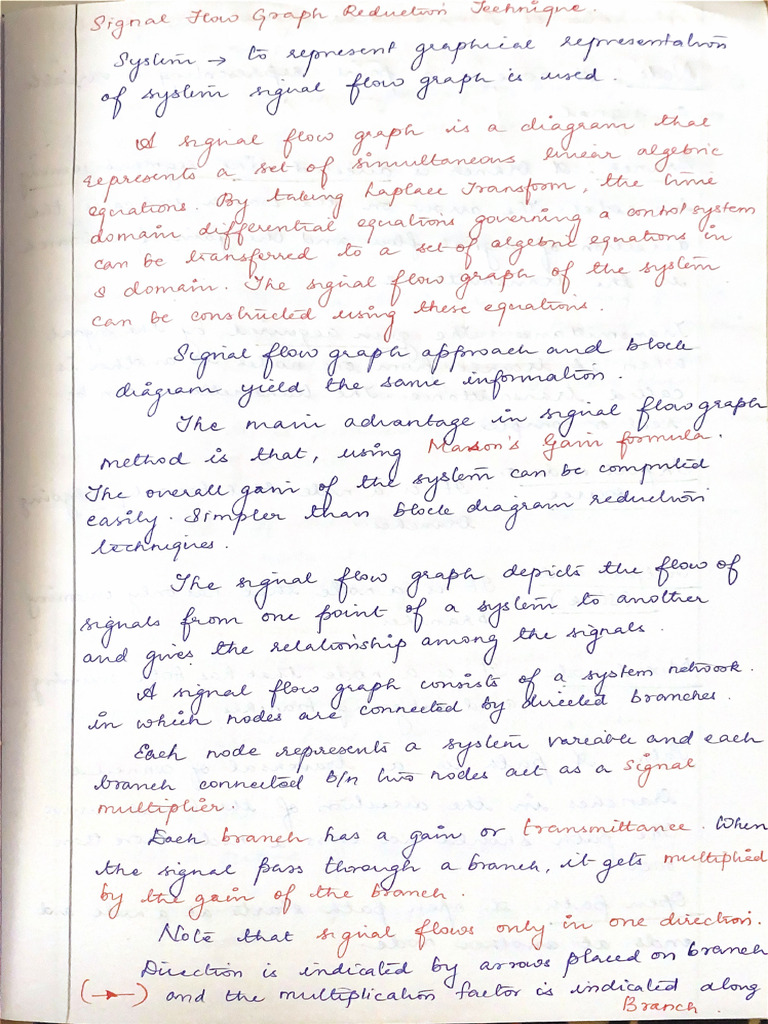 Signal Flow Graph Reduction Technique.
System → to represent graphical representation
of system signal flow graph is used.
A signal flow graph is a diagram that
represents a set of simultaneous linear algebric
equations. By taking Laplace Transform, the time
domain differential equations governing a control system
can be transferred to a set of algebric equations in
s domain. The signal flow graph of the system
can be constructed using these equations.
Signal flow graph approach and block
diagram yield the same information.
The main advantage in signal flow graph
method is that, using Mason's Gain formula.
The overall gain of the system can be computed
easily. Simpler than block diagram reduction
techniques.
The signal flow graph depicts the flow of
signals from one point of a system to another
and gives the relationship among the signals.
A signal flow graph consists of a system network.
in which nodes are connected by directed branches.
Each node represents a system variable and each
branch connected b/n two nodes act as a signal
multiplier.
Each branch has a gain or transmittance. When
the signal pass through a branch, it gets multiplied
by the gain of the branch.
Note that signal flows only in one direction.
Direction is indicated by arrows placed on branch
(→) and the multiplication factor is indicated along
Branch.